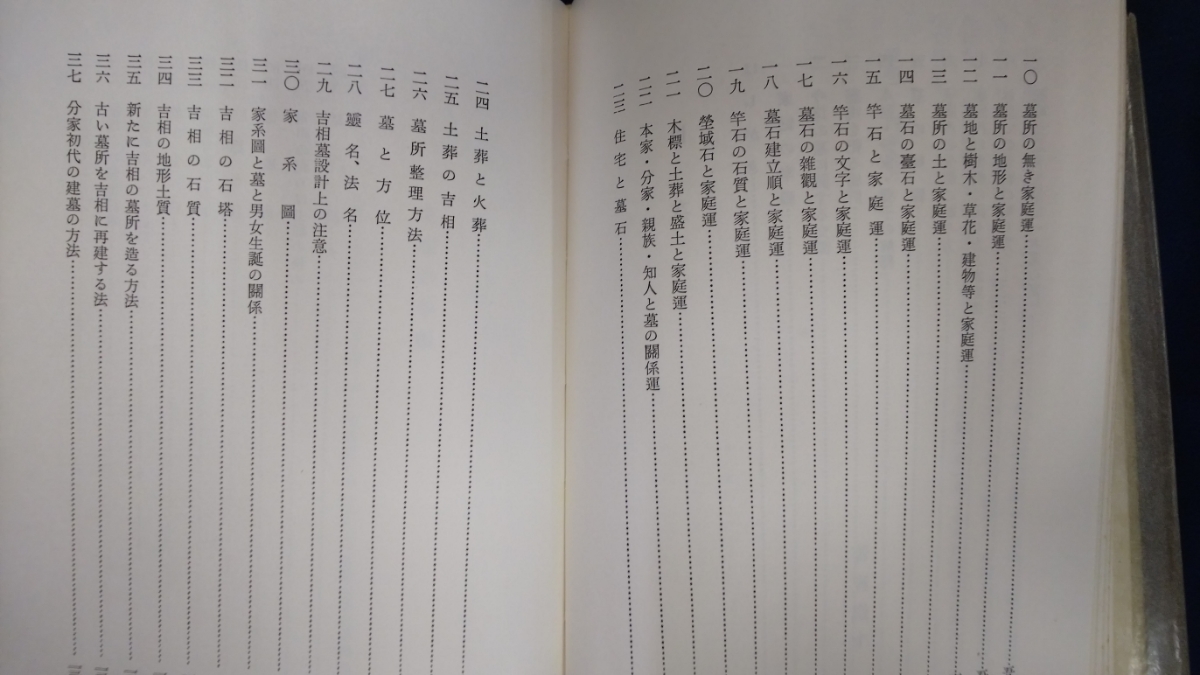 一〇 墓所の無き家庭運
一一 墓所の地形と家庭運
一二 墓地と樹木・草花・建物等と家庭運
一三 墓所の土と家庭運
一四 墓石の臺石と家庭運
一五 竿石と家庭運
一六 竿石の文字と家庭運
一七 墓石の雑觀と家庭運
一八 墓石建立順と家庭運
一九 竿石の石質と家庭運
二〇 塋域石と家庭運
二一 木標と土葬と盛土と家庭運
二二 本家・分家・親族・知人と墓の關係運
二三 住宅と墓石
二四 土葬と火葬
二五 土葬の吉相
二六 墓所整理方法
二七 墓と方位
二八 靈名、法名
二九 吉相墓設計上の注意
三〇 家系圖
三一 家系圖と墓と男女生誕の關係
三二 吉相の石塔
三三 吉相の石質
三四 吉相の地形土質
三五 新たに吉相の墓所を造る方法
三六 古い墓所を吉相に再建する法
三七 分家初代の建墓の方法